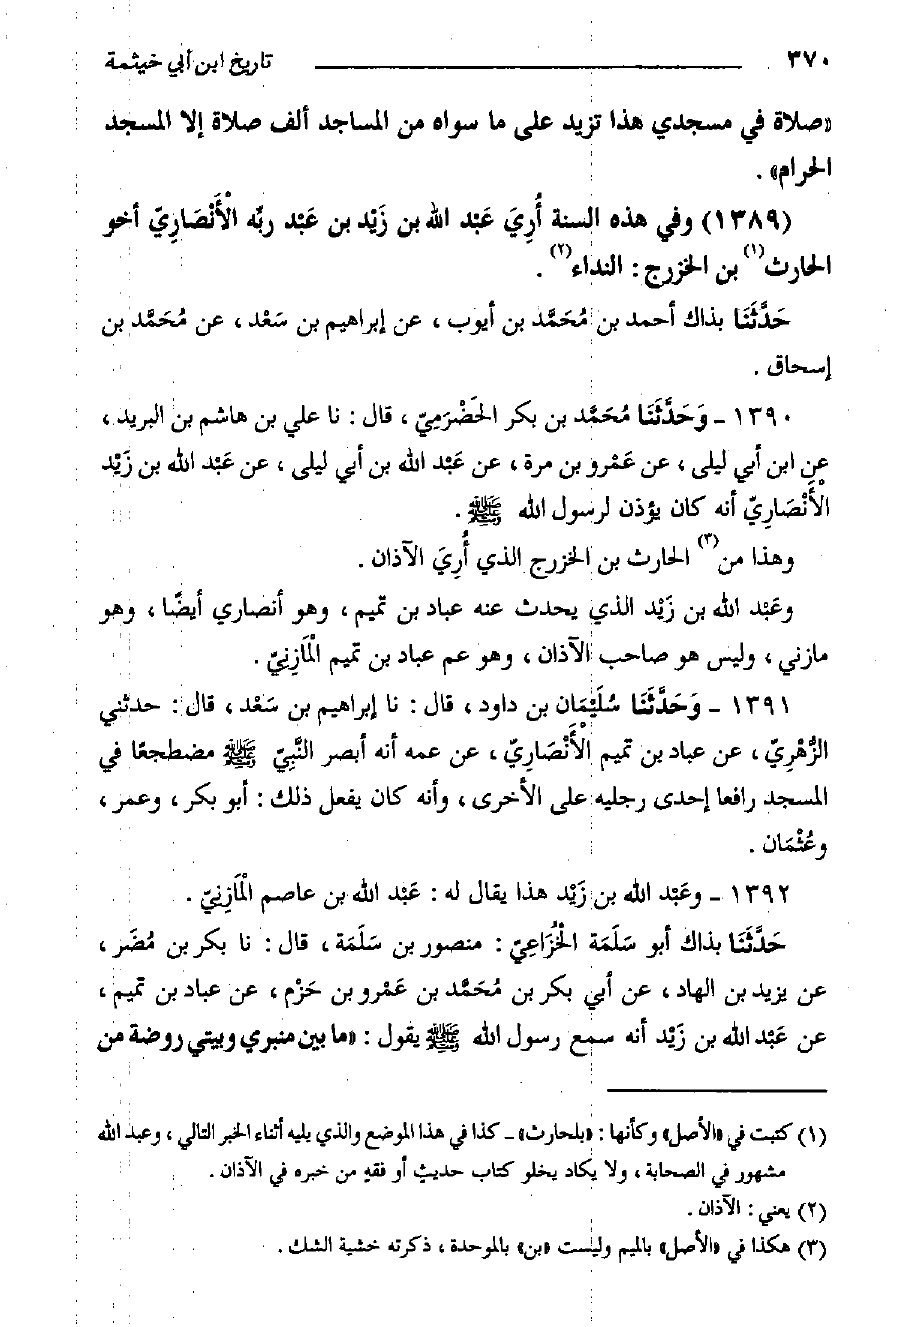 ٣٧٠ تاريخ ابن أبي خيثمة
«صلاة في مسجدي هذا تزيد على ما سواه من المساجد ألف صلاة إلا المسجد
الحرام» .
(١٣٨٩) وفي هذه السنة أُرِيَ عَبْد الله بن زَيْد بن عَبْد ربّه الْأَنْصَارِيّ أخو
الحارث(١) بن الخزرج : النداء(٢) .
حَدَّثَنَا بذاك أحمد بن مُحَمَّد بن أيوب ، عن إبراهيم بن سَعْد ، عن مُحَمَّد بن
إسحاق .
١٣٩٠ - وَحَدَّثَنَا مُحَمَّد بن بكر الحَضْرَمِيّ ، قال : نا علي بن هاشم بن البريد ،
عن ابن أبي ليلى ، عن عَمْرو بن مرة ، عن عَبْد الله بن أبي ليلى ، عن عَبْد الله بن زَيْد
الْأَنْصَارِيّ أنه كان يؤذن لرسول الله ﷺ .
وهذا من(٣) الحارث بن الخزرج الذي أُرِيَ الآذان .
وعَبْد الله بن زَيْد الذي يحدث عنه عباد بن تميم ، وهو أنصاري أيضًا ، وهو
مازني ، وليس هو صاحب الآذان ، وهو عم عباد بن تميم الْمَازِنِيّ .
١٣٩١ - وَحَدَّثَنَا سُلَيْمَان بن داود ، قال : نا إبراهيم بن سَعْد ، قال : حدثني
الزُّهْرِيّ ، عن عباد بن تميم الْأَنْصَارِيّ ، عن عمه أنه أبصر النَّبِيّ ﷺ مضطجعًا في
المسجد رافعا إحدى رجليه على الأخرى ، وأنه كان يفعل ذلك : أبو بكر ، وعمر ،
وعُثْمَان .
١٣٩٢ - وعَبْد الله بن زَيْد هذا يقال له : عَبْد الله بن عاصم الْمَازِنِيّ .
حَدَّثَنَا بذاك أبو سَلَمَة الْخُزَاعِيّ : منصور بن سَلَمَة ، قال : نا بكر بن مُضَر ،
عن يزيد بن الهاد ، عن أبي بكر بن مُحَمَّد بن عَمْرو بن حَزْم ، عن عباد بن تميم ،
عن عَبْد الله بن زَيْد أنه سمع رسول الله ﷺ يقول : «ما بين منبري وبيتي روضة من
(١) كتبت في «الأصل» وكأنها : «بلحارث» - كذا في هذا الموضع والذي يليه أثناء الخبر التالي ، وعبد الله
مشهور في الصحابة ، ولا يكاد يخلو كتاب حديثٍ أو فقهٍ من خبره في الآذان .
(٢) يعني : الآذان .
(٣) هكذا في «الأصل» بالميم وليست «بن» بالموحدة ، ذكرته خشية الشك .